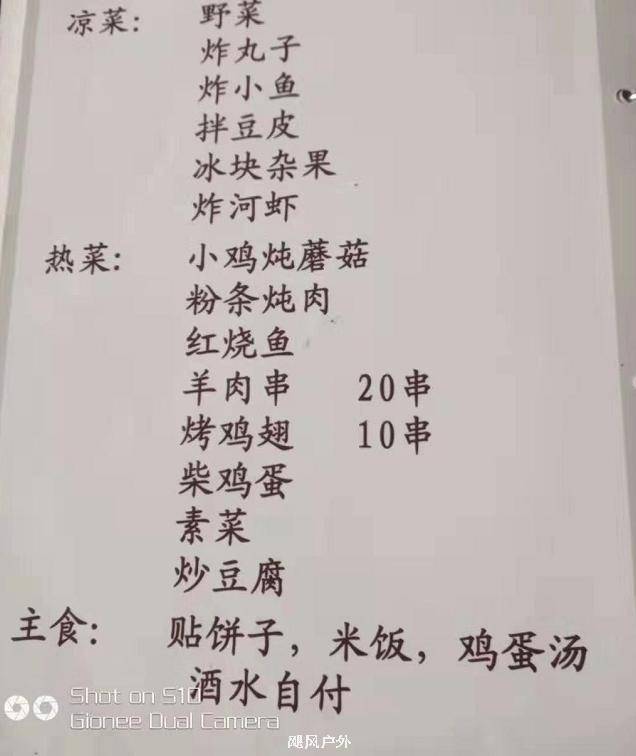 凉菜: 野菜
炸丸子
炸小鱼
拌豆皮
冰块杂果
炸河虾
热菜: 小鸡炖蘑菇
粉条炖肉
红烧鱼
羊肉串 20串
烤鸡翅 10串
柴鸡蛋
素菜
炒豆腐
主食: 贴饼子，米饭，鸡蛋汤
酒水自付
Shot on S10
Gionee Dual Camera
飓风户外